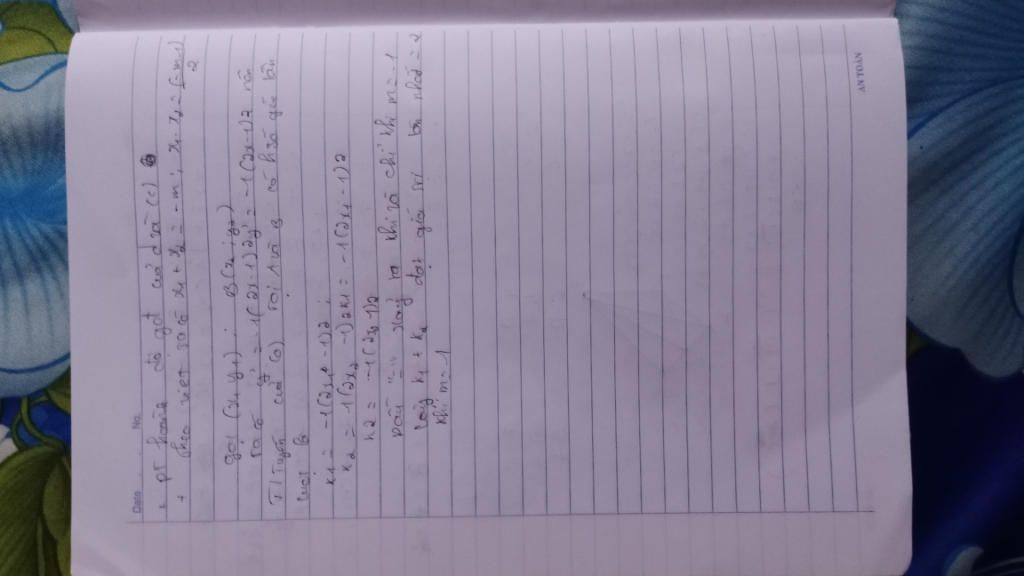 Date No.
+ PT hoành độ gđ của d và (c)
+ theo viet ta có x₁ + x₂ = -m ; x₁ . x₂ = (-m-1)/2
gọi (x₁ y₁) ; B(x₂ ; y₂)
ta có y' = -1(2x-1)2 y' = -1(2x-1)2 nên
T/Tuyến của (c) tại A và B có hsố góc lần
lượt là
k₁ = -1(2x₁ -1)2 ;
k₂ = -1(2x₂ -1)2 k₁ = -1(2x₁ -1)2
k2 = -1(2x₂-1)2
Dấu "=" xảy ra khi và chỉ khi m = -1
vậy k₁ + k₂ đạt giá trị lớn nhất = 2
khi m = -1
AN TOÀN